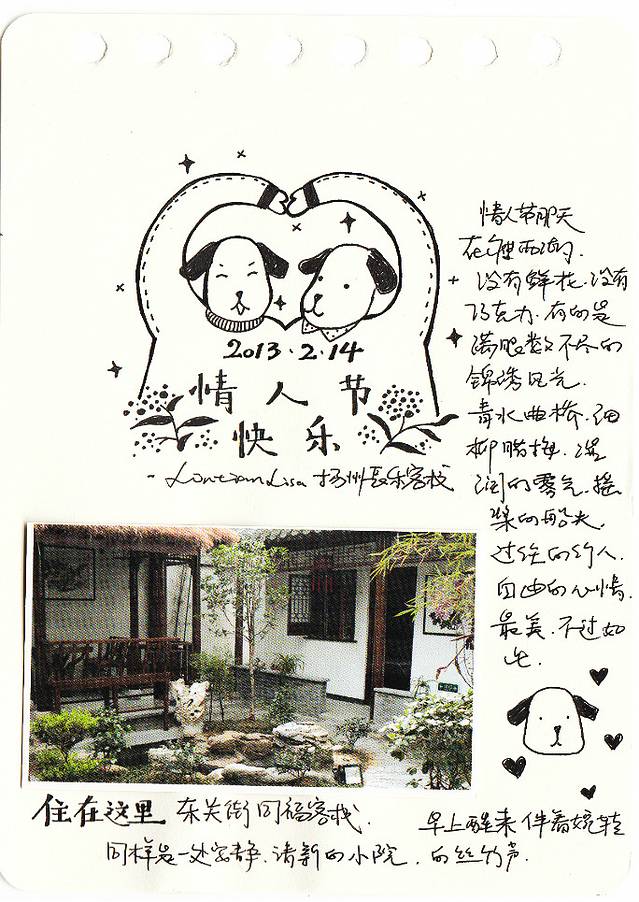 2013.2.14
情人节
快乐
扬州长乐客栈
情人节那天
在瘦西湖.
没有鲜花.没有
巧克力.有的是
满眼数不尽的
锦绣风光.
青水曲桥.细
柳腊梅.湿
润的雾气.摇
桨的船夫.
过往的行人.
自由的心情.
最美.不过如
此.
住在这里 东关街同福客栈.
同样是一处安静.清新的小院.
早上醒来伴着婉转
的丝竹声.